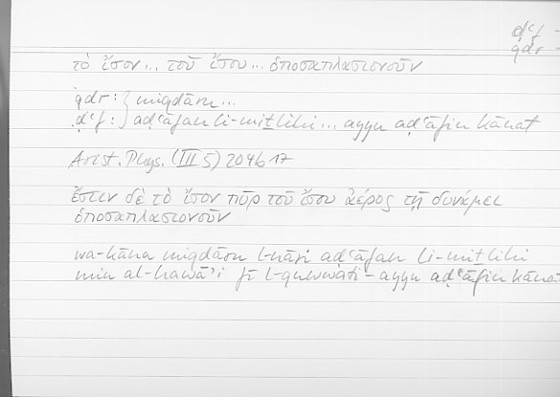 ḍʿf -
qdr -
τὸ ἴσον... τοῦ ἴσου... ὁποσαπλασιονοῦν
qdr: } miqdāru...
ḍʿf: } aḍʿāfan li-miṯlihi... ayyu aḍʿāfin kānat
Arist. Phys. (III 5) 204b17
ἔστιν δὲ τὸ ἴσον πῦρ τοῦ ἴσου ἀέρος τῇ δυνάμει
ὁποσαπλασιονοῦν
wa-kāna miqdāru l-nāri aḍʿāfan li-miṯlihi
min al-hawāʾi fī l-quwwati - ayyu aḍʿāfin kānat